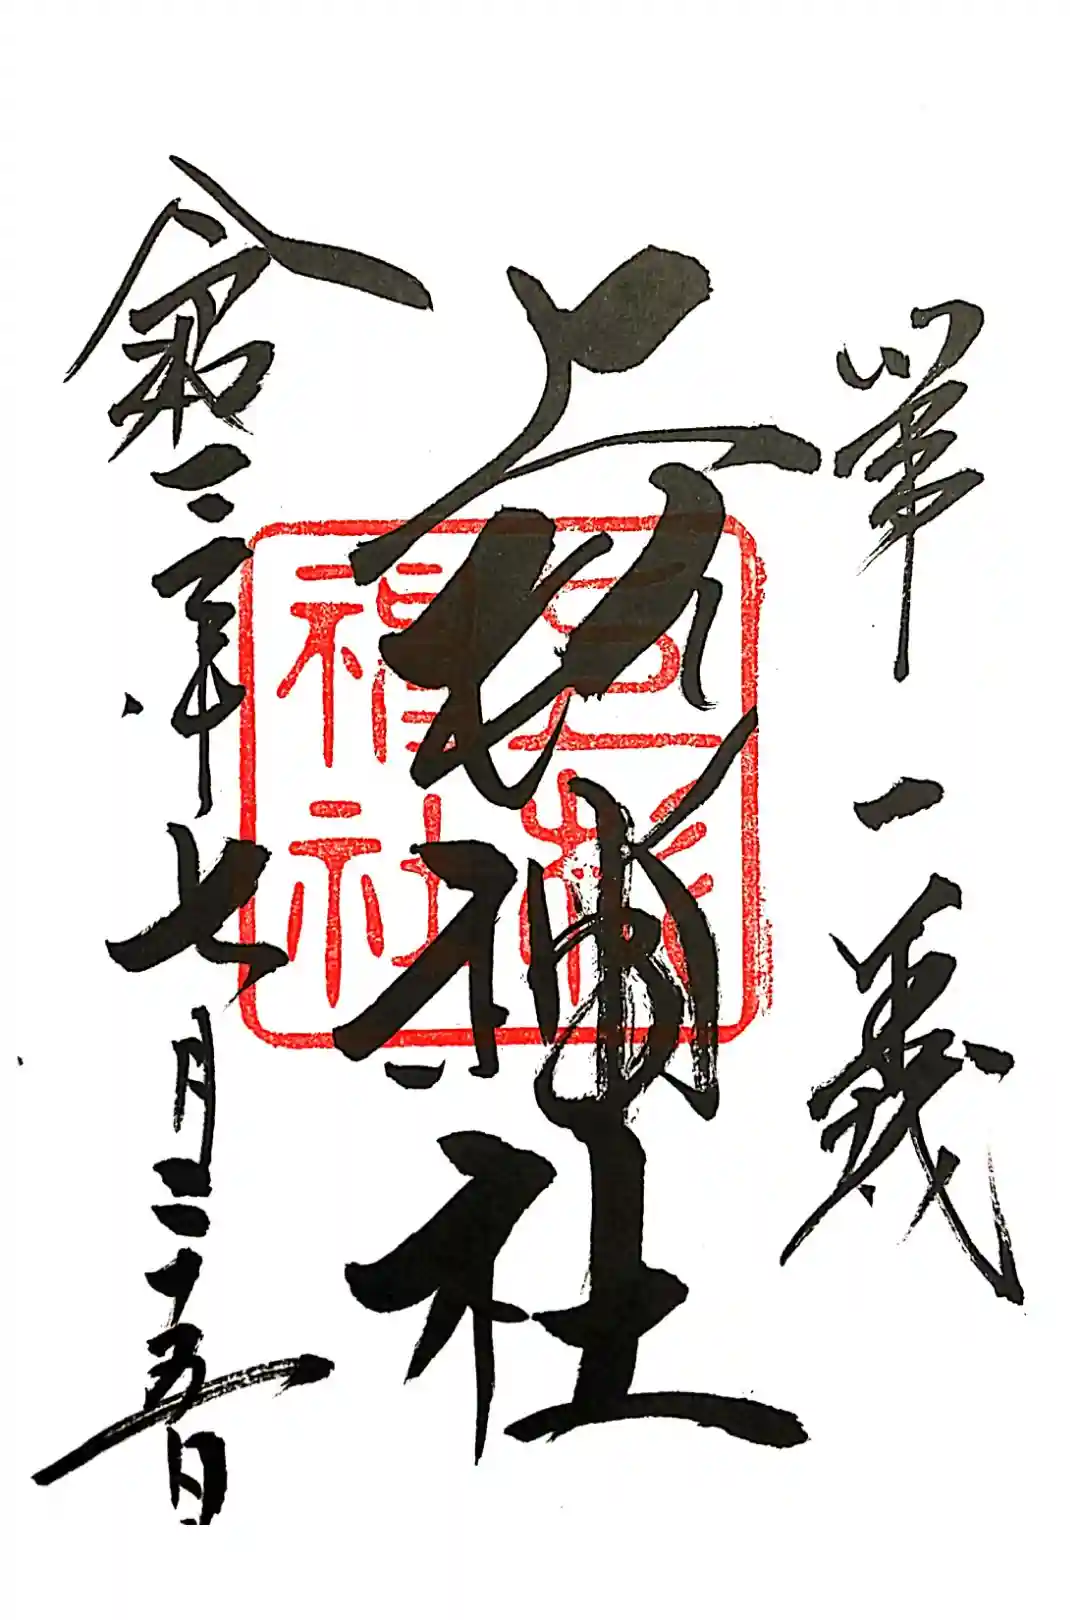 第一義
上杉神社
令和二年七月二十五日